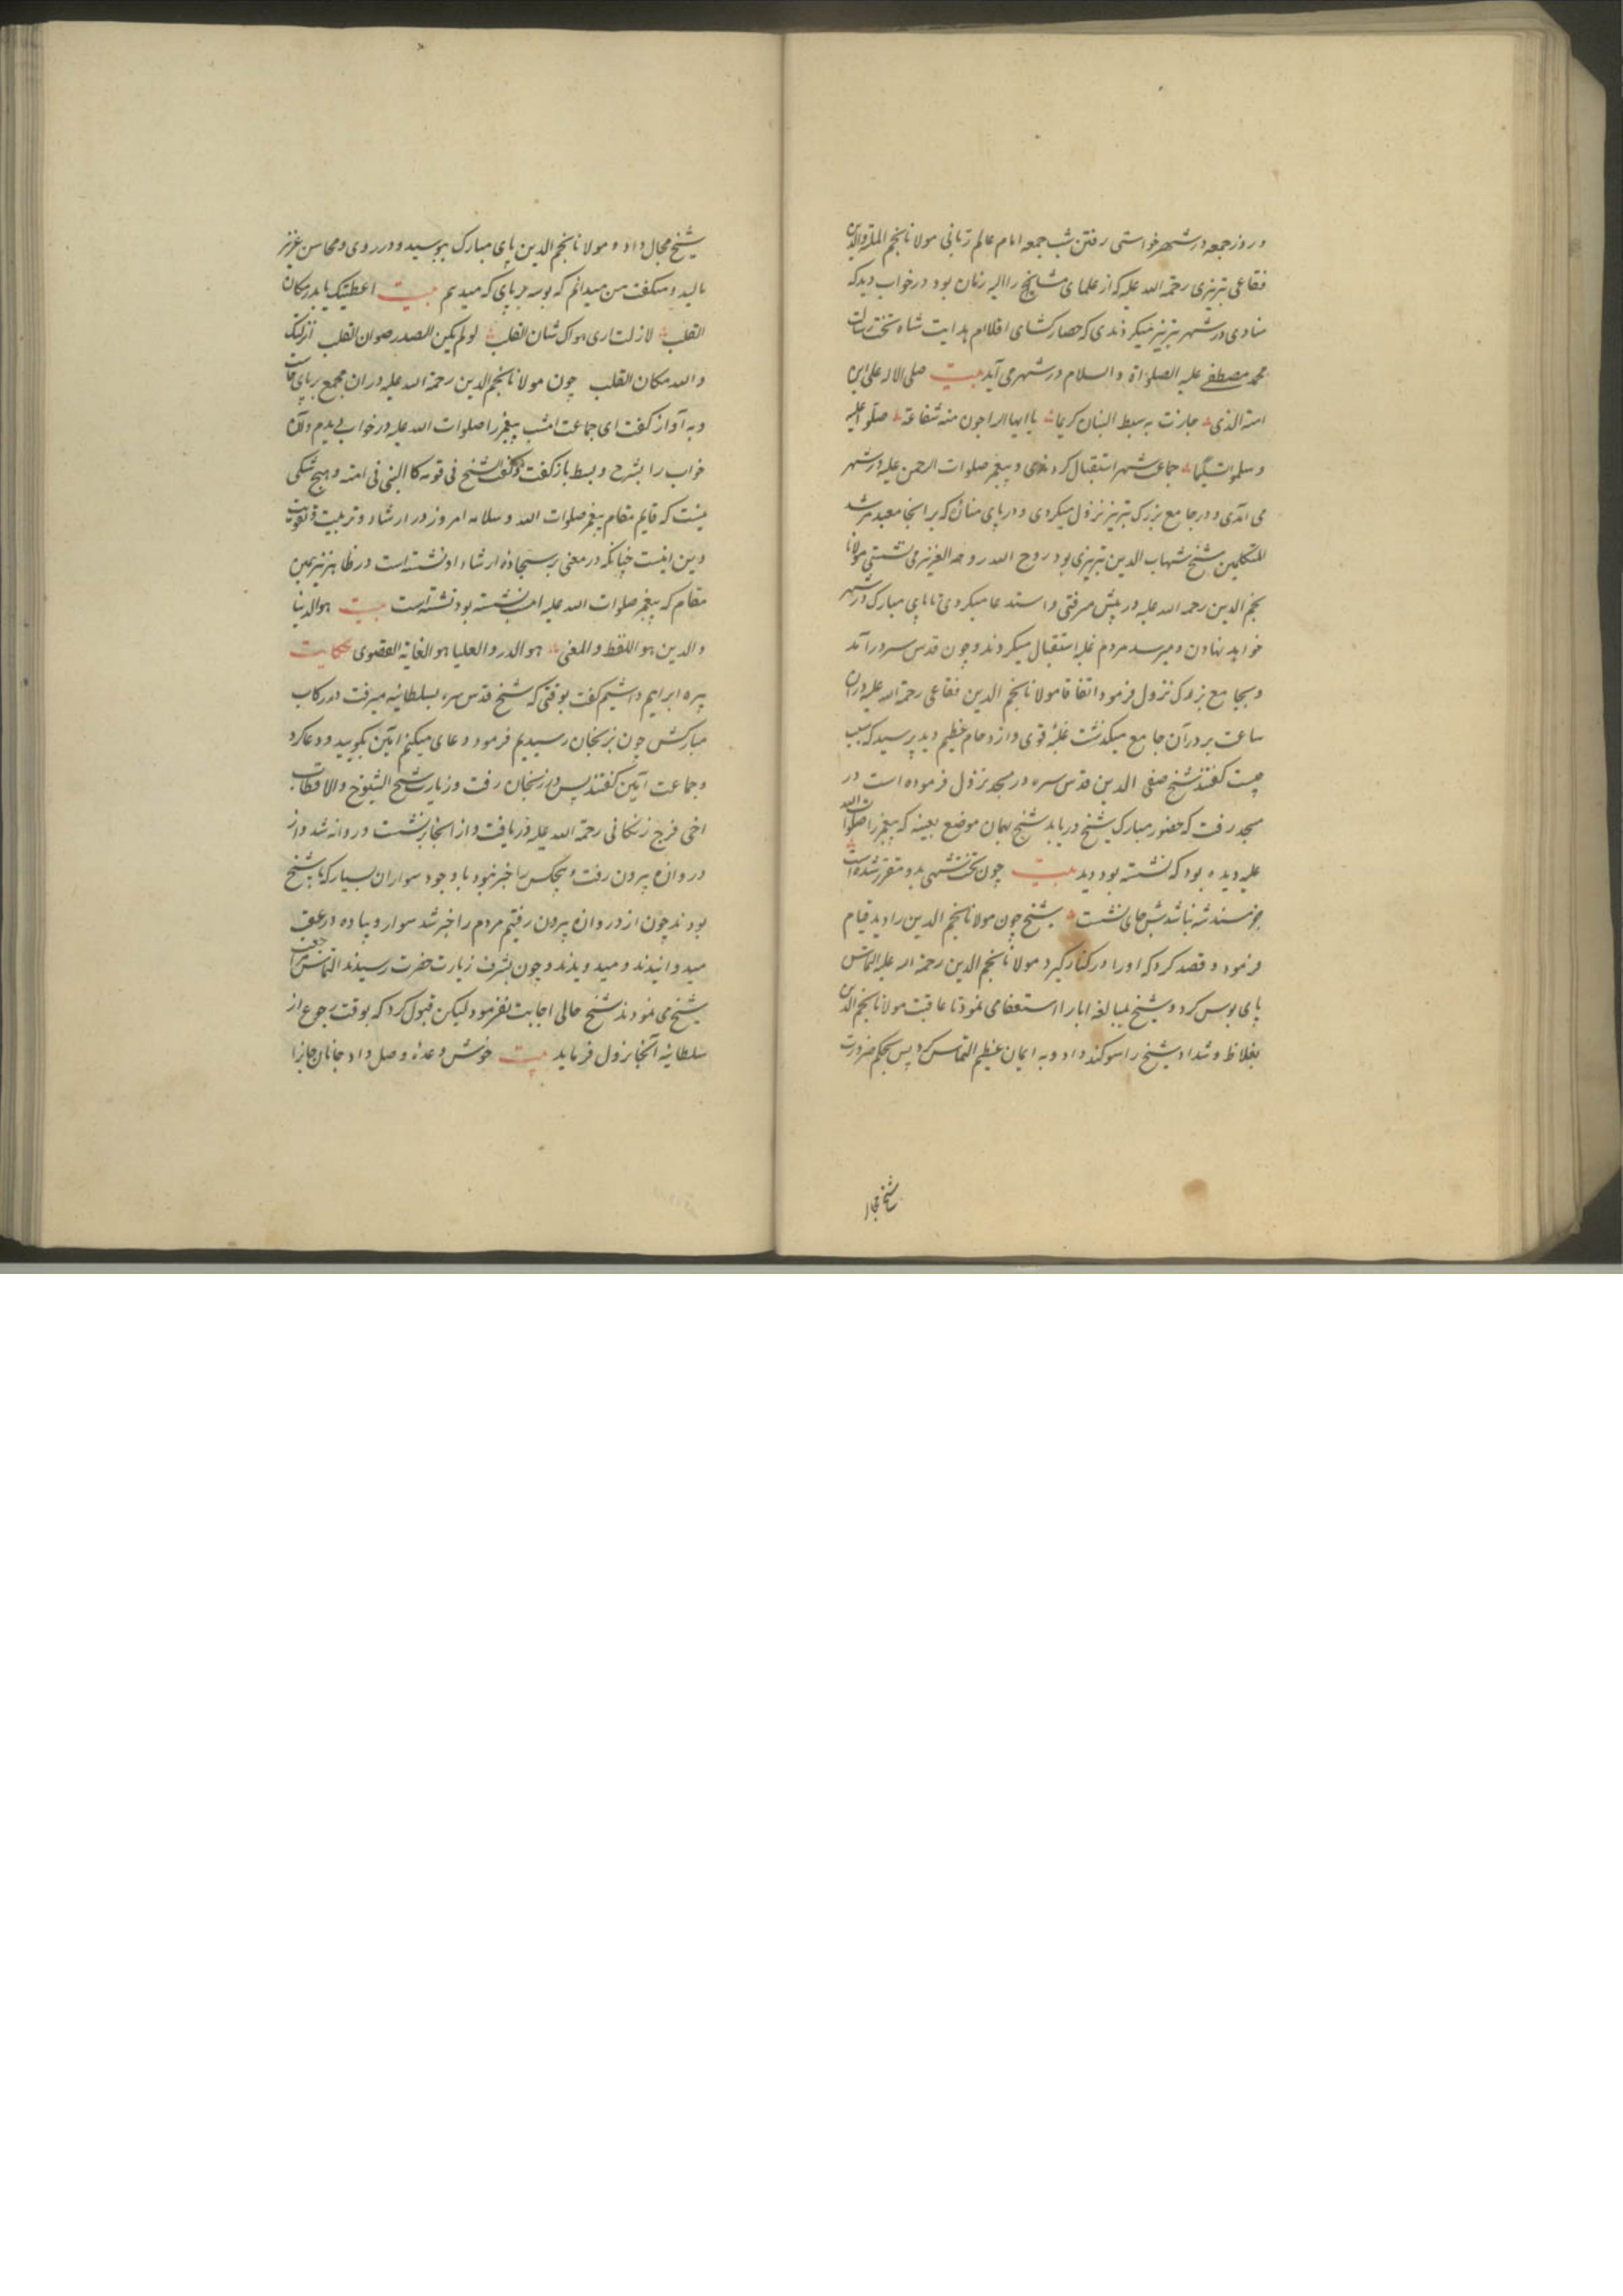 و روز جمعه در شهر خواستی رفتن شب جمعه امام عالم ربانی مولانا نجم الملة والدین
فقاعی تبریزی رحمة الله علیه که از علمای مشایخ را الیه زمان بود در خواب دید که
منادی در شهر تبریز میکردندی که حصار کشای اقلام هدایت شاه تخت رسالت
محمد مصطفی علیه الصلواة والسلام در شهر می آید بیت صلی الاله علی ابن
امنة الذی جازت به سبط البنان کریما یا ایها الراجون منه شفاعة صلوا علیه
وسلموا تسلیما جماعت شهر استقبال کردندی و پیغمبر صلوات الرحمن علیه در شهر
می آمدی و در جامع بزرک تبریز نزول میکردی و در پای که بر انجا معبد مرشد
المتکلمین شیخ شهاب الدین تبریزی بود روح الله روحه العزیز می نشستی مولانا
نجم الدین رحمه الله علیه در پیش میرفتی و استدعا میکردی تا پای مبارک در شهر
خواهد نهادن و میرسد مردم غلبه استقبال میکردند و چون قدس سره در آمد
و بجامع بزرک نزول فرمود اتفاقا مولانا نجم الدین فقاعی رحمة الله علیه در ان
ساعت بر در آن جامع میکذشت غلبه قوی و ازدحام عظیم دید پرسید که سبب
چیست کفتند شیخ صفی الدین قدس سره در مسجد نزول فرموده است در
مسجد رفت که حضور مبارک شیخ دریابد شیخ بهمان موضع بعینه که پیغمبر را صلوات الله
علیه دیده بود که نشسته بود دید بیت چون تخت شهی بدو مقرر شده است
جز مسند شه نباشدش جای نشست شیخ چون مولانا نجم الدین را دید قیام
فرمود و قصد کرد که اورا در کنار کیرد مولانا نجم الدین رحمة الله علیه التماس
پای بوس کرد و شیخ بمبالغه ابا را استعفا می نمود تا عاقبت مولانا نجم الدین
بغلاظ و شداد شیخ را سوکند داد و به ایمان عظیم التماس کرد پس بحکم ضرورت
شیخ مجال
شیخ مجال داد و مولانا نجم الدین پای مبارک ببوسید و در روی و محاسن عزیز
مالید و میکفت من میدانم که بوسه بر پای که میدهم بیت اعطیتک یا بدر مکان
القلب لازلت اری هواک شان القلب لو لم یکن الصدر صوان القلب انزلتک
والله مکان القلب چون مولانا نجم الدین رحمة الله علیه در ان مجمع بر پای خاست
و به آواز کفت ای جماعت امشب پیغمبر را صلوات الله علیه در خواب دیدم و آن
خواب را بشرح و بسط باز کفت و کفت الشیخ فی قومه کالنبی فی امته و هیچ شکی
نیست که قایم مقام پیغمبر صلوات الله و سلامه امروز در ارشاد و تربیت و تقویت
دین اینست چنانکه در معنی بر سجاده ارشاد او نشسته است در ظاهر نیز بهمین
مقام که پیغمبر صلوات الله علیه امشب نشسته بود نشسته است بیت هو الدنیا
والدین هو اللفظ والمعنی هو الدر والعلیا هو الغایة القصوی حکایت
پیره ابراهیم داشیم کفت بوقتی که شیخ قدس سره بسلطانیه میرفت در رکاب
مبارکش چون بزنجان رسیدیم فرمود دعای میکنم آمین بکویید و دعا کرد
و جماعت آمین کفتند پس در زنجان رفت و زیارت شیخ الشیوخ والاقطاب
اخی فرج زنجانی رحمة الله علیه دریافت و از انجا برنشست و روانه شد و از
دروازه بیرون رفت و هیچکس را خبر نبود با وجود سواران بسیار که با شیخ
بودند چون از دروازه بیرون رفتیم مردم را خبر شد سوار و پیاده در عقب
میدوانیدند و میدویدند و چون بشرف زیارت حضرت رسیدند التماس مراجعت
شیخ می نمودند شیخ حالی اجابت نفرمود لیکن قبول کرد که بوقت رجوع از
سلطانیه آنجا نزول فرماید بیت خوش وعده وصل داد جانان جانرا